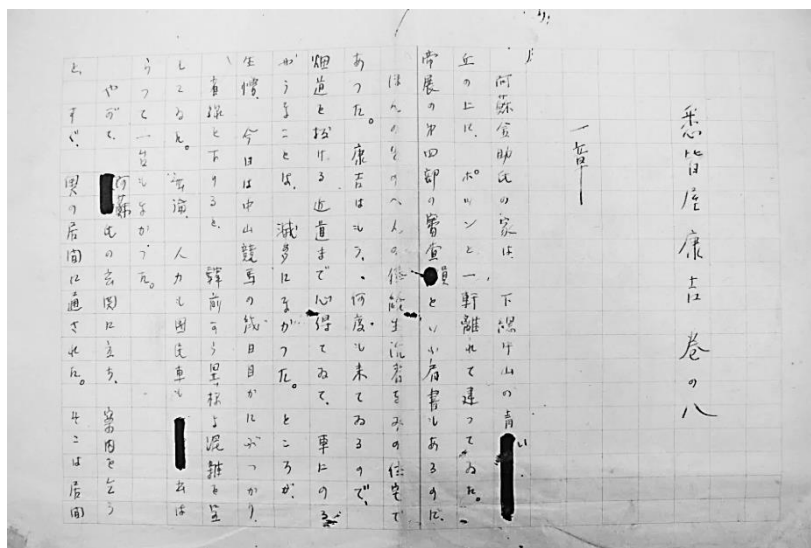 悉皆屋康吉 巻の八
一章
阿蘇金助氏の家は、下総中山の青い
丘の上に、ポツンと一軒離れて建つてゐた。
帝展の第四部の審査員といふ肩書もあるのに、
ほんのそのへんの俸給生活者なみの住宅で
あつた。康吉はもう、何度も来てゐるので、
畑道を抜ける近道まで心得てゐて、車にのる
がうなことは、滅多になかつた。ところが、
生憎、今日は中山競馬の幾日目かにぶつかり、
直線と下りると、驛前から異様な混雑を呈
してゐた。無論、人力も円タク車も 出は
らつて一台もなかつた。
やがて、阿蘇氏の玄関に立ち、案内を乞ふ
と、すぐ、奥の居間に通された。そこは居間